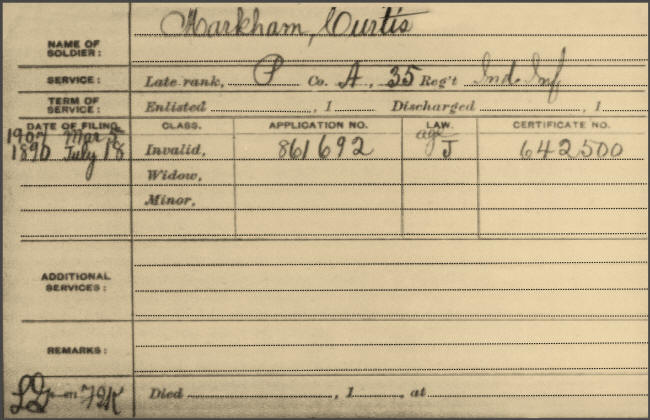 Markham, Curtis
NAME OF SOLDIER:
SERVICE: Late rank, P Co. A, 35 Reg't Ind. Inf
TERM OF SERVICE: Enlisted , 1 Discharged , 1
DATE OF FILING. CLASS. APPLICATION NO. LAW. CERTIFICATE NO.
1907 Mar 5 age
1890 July 18 Invalid, 861692 J 642500
Widow,
Minor,
ADDITIONAL SERVICES:
REMARKS:
Died , 1 , at